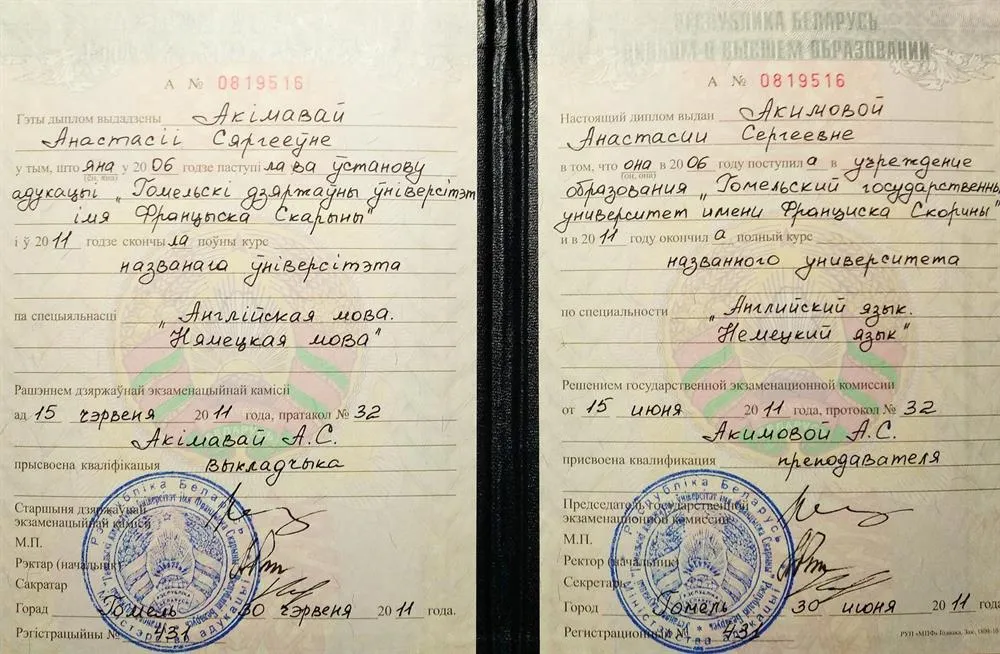 А № 0819516
Гэты дыплом выдадзены Акімавай
Анастасіі Сяргееўне
у тым, што яна у 2006 годзе паступіла ва ўстанову
(ён, яна)
адукацыі „Гомельскі дзяржаўны ўніверсітэт
імя Францыска Скарыны"
і ў 2011 годзе скончыла поўны курс
названага ўніверсітэта
па спецыяльнасці „Англійская мова.
Нямецкая мова"
Рашэннем дзяржаўнай экзаменацыйнай камісіі
ад 15 чэрвеня 2011 года, пратакол № 32
Акімавай А.С.
прысвоена кваліфікацыя выкладчыка
Старшыня дзяржаўнай
экзаменацыйнай камісіі
М.П.
Рэктар (начальнік)
Сакратар
Горад Гомель 30 чэрвеня 2011 года.
Рэгістрацыйны № 431
Рэспубліка Беларусь
Міністэрства адукацыі
РЭСПУБЛИКА БЕЛАРУСЬ
ДИПЛОМ О ВЫСШЕМ ОБРАЗОВАНИИ
А № 0819516
Настоящий диплом выдан Акимовой
Анастасии Сергеевне
в том, что она в 2006 году поступила в учреждение
(он, она)
образования „Гомельский государственный
университет имени Франциска Скорины"
и в 2011 году окончила полный курс
названного университета
по специальности „Английский язык.
Немецкий язык"
Решением государственной экзаменационной комиссии
от 15 июня 2011 года, протокол № 32
Акимовой А.С.
присвоена квалификация преподавателя
Председатель государственной
экзаменационной комиссии
М.П.
Ректор (начальник)
Секретарь
Город Гомель 30 июня 2011 года.
Регистрационный № 431
Рэспубліка Беларусь
Міністэрства адукацыі